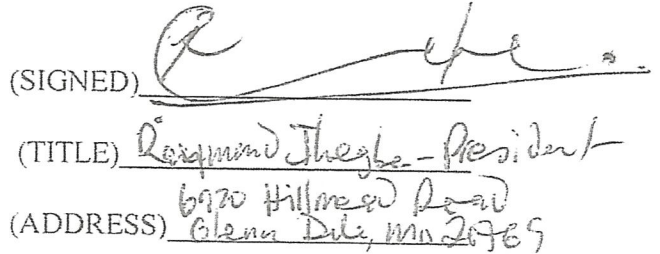 (SIGNED)
(TITLE) Raymond Ihegba - President
6920 Hillmead Road
(ADDRESS) Glenn Dale, MD 20769